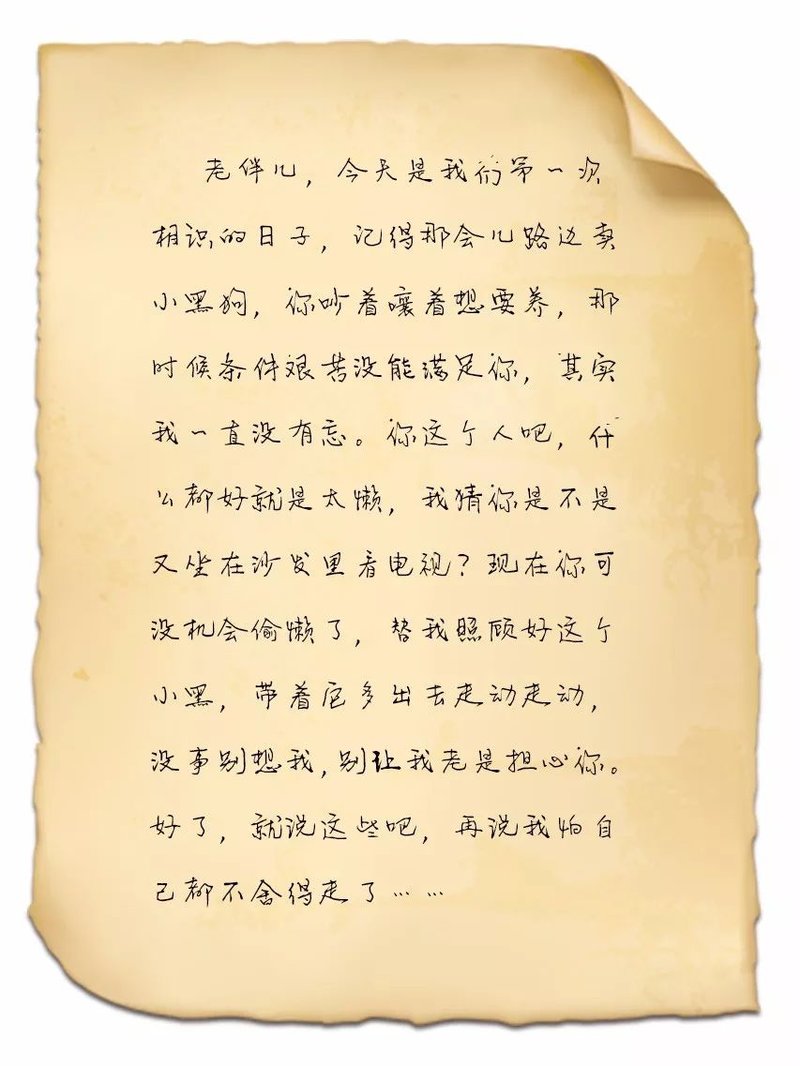 老伴儿，今天是我们第一次
相识的日子，记得那会儿路边卖
小黑狗，你吵着嚷着想要养，那
时候条件艰苦没能满足你，其实
我一直没有忘。你这个人吧，什
么都好就是太懒，我猜你是不是
又坐在沙发里看电视？现在你可
没机会偷懒了，替我照顾好这个
小黑，带着它多出去走动走动，
没事别想我，别让我老是担心你。
好了，就说这些吧，再说我怕自
己都不舍得走了……